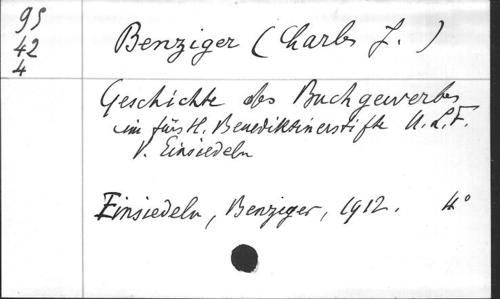 95
42
4
Benziger (Charles J.)
Geschichte des Buchgewerbes
im fürstl. Benediktinerstifte U. L. F.
v. Einsiedeln
Einsiedeln, Benziger, 1912. 4°